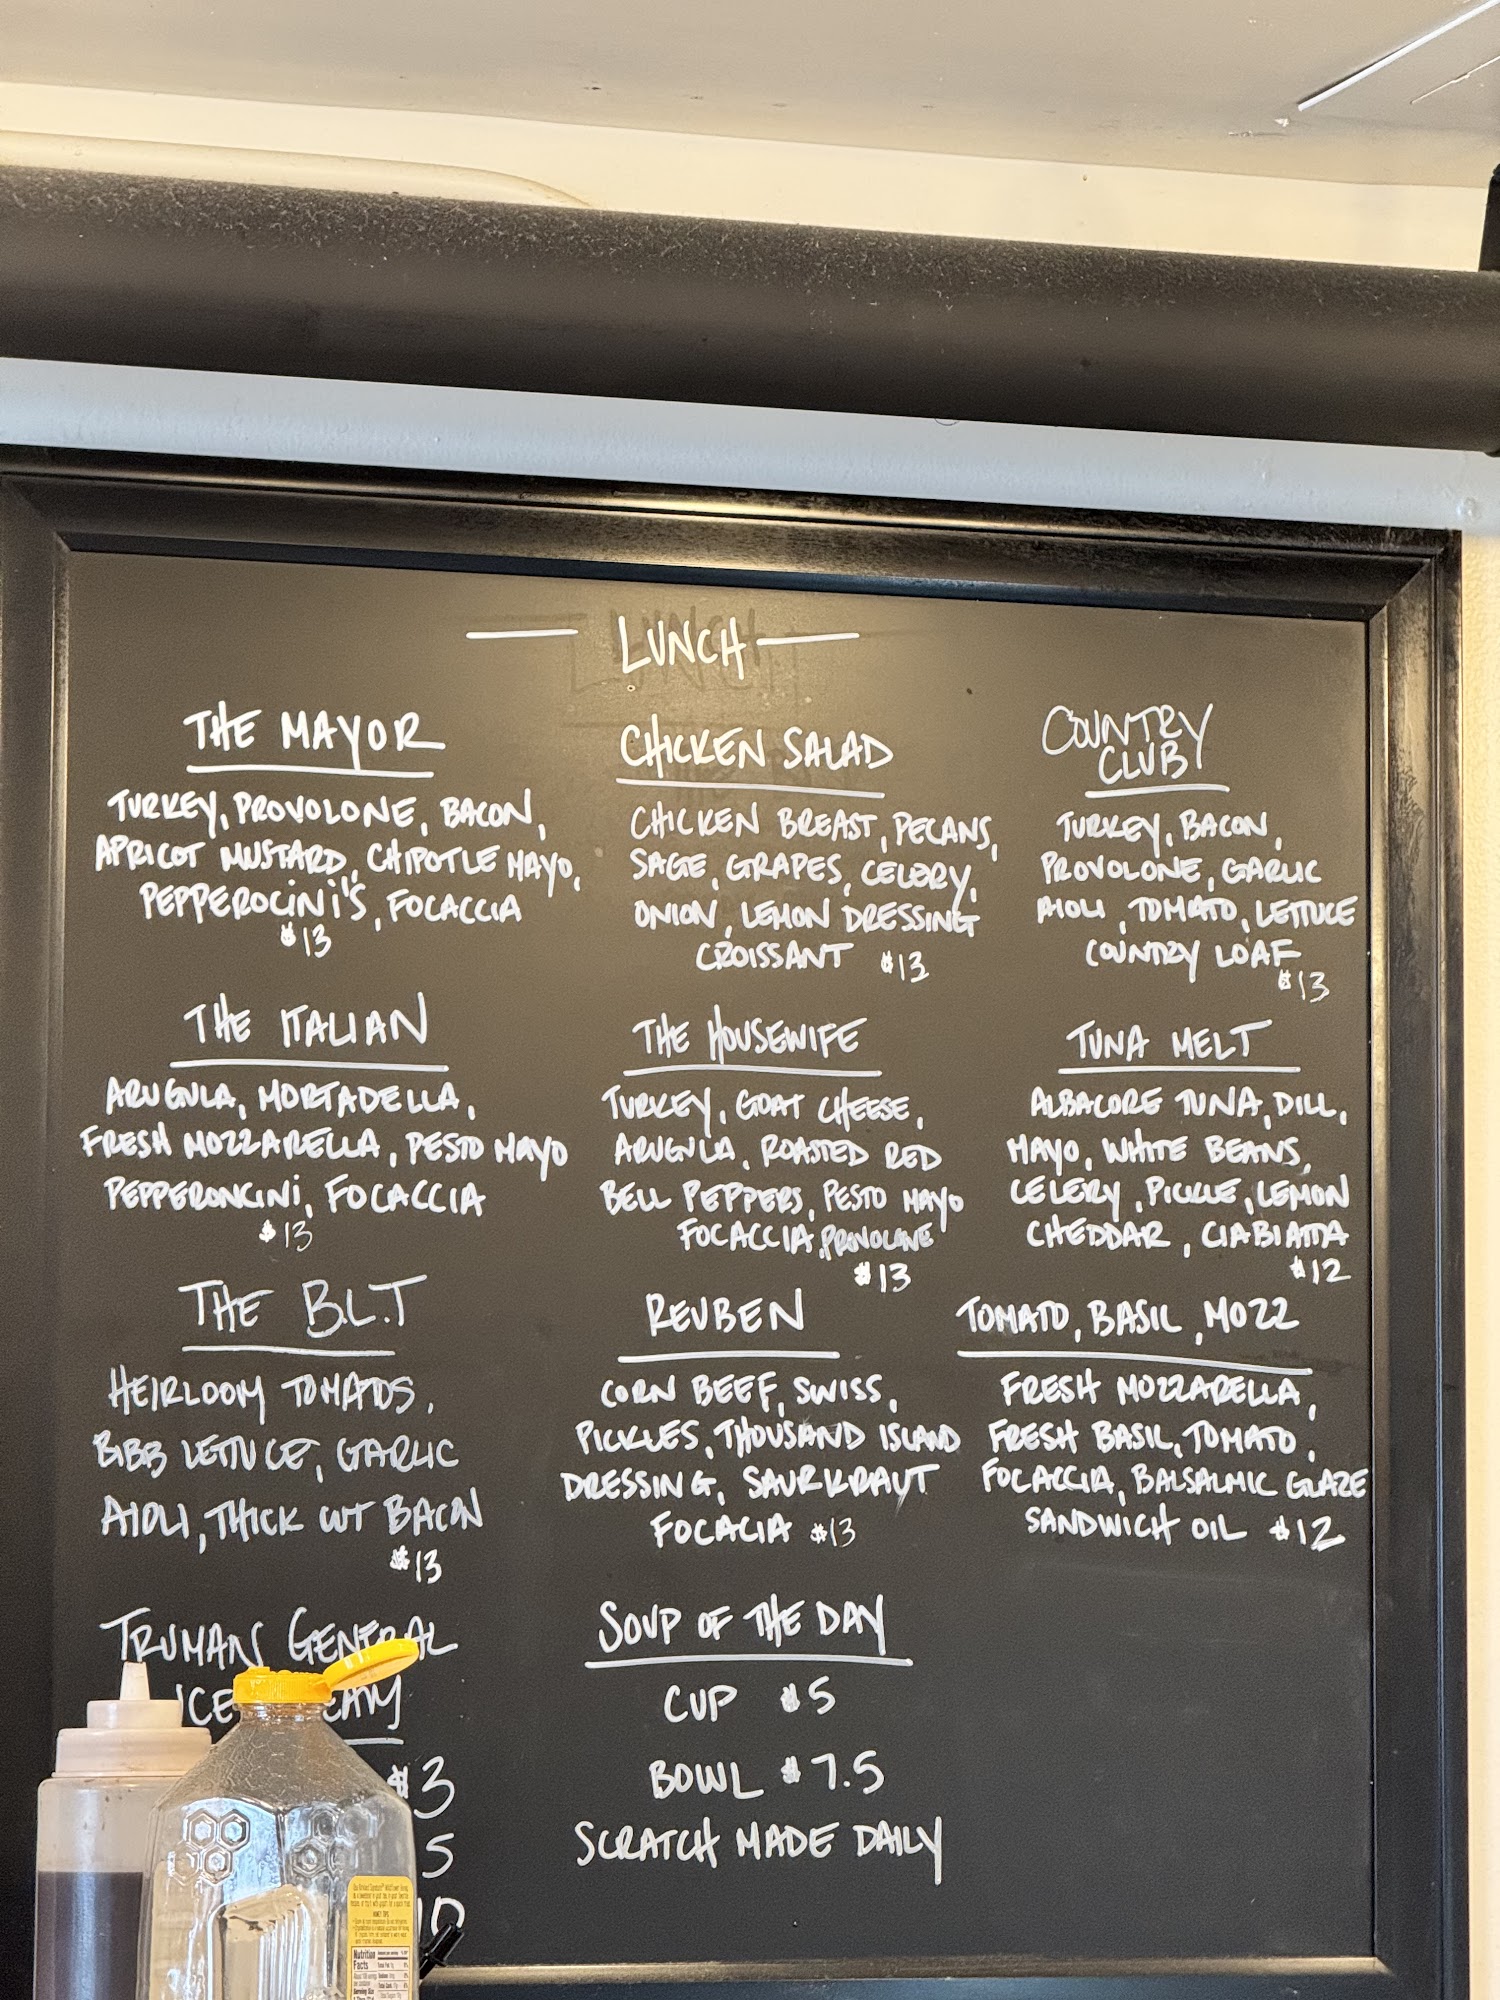 LUNCH
THE MAYOR
TURKEY, PROVOLONE, BACON,
APRICOT MUSTARD, CHIPOTLE MAYO,
PEPPEROCINI'S, FOCACCIA
$13
THE ITALIAN
ARUGULA, MORTADELLA,
FRESH MOZZARELLA, PESTO MAYO
PEPPERONCINI, FOCACCIA
$13
THE B.L.T
HEIRLOOM TOMATOS,
BIBB LETTUCE, GARLIC
AIOLI, THICK CUT BACON
$13
TRUMAN GENERAL
ICE
$3
5
10
CHICKEN SALAD
CHICKEN BREAST, PECANS,
SAGE, GRAPES, CELERY,
ONION, LEMON DRESSING
CROISSANT $13
THE HOUSEWIFE
TURKEY, GOAT CHEESE,
ARUGULA, ROASTED RED
BELL PEPPERS, PESTO MAYO
FOCACCIA, PROVOLONE
$13
REUBEN
CORN BEEF, SWISS,
PICKLES, THOUSAND ISLAND
DRESSING, SAURKRAUT
FOCACIA $13
SOUP OF THE DAY
CUP $5
BOWL $7.5
SCRATCH MADE DAILY
COUNTRY
CLUB
TURKEY, BACON,
PROVOLONE, GARLIC
AIOLI, TOMATO, LETTUCE
COUNTRY LOAF
$13
TUNA MELT
ALBACORE TUNA, DILL,
MAYO, WHITE BEANS,
CELERY, PICKLE, LEMON
CHEDDAR, CIABIATTA
$12
TOMATO, BASIL, MOZZ
FRESH MOZZARELLA,
FRESH BASIL, TOMATO,
FOCACCIA, BALSALMIC GLAZE
SANDWICH OIL $12
Nutrition
Facts